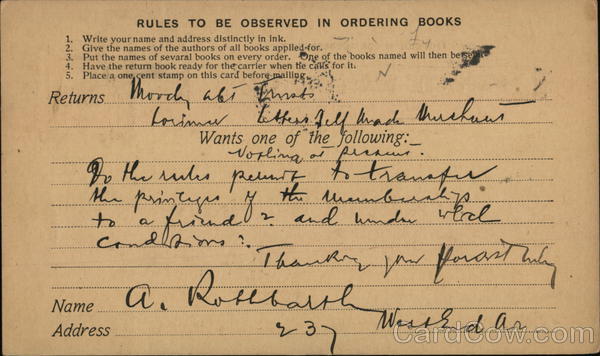 RULES TO BE OBSERVED IN ORDERING BOOKS
1. Write your name and address distinctly in ink.
2. Give the names of the authors of all books applied for.
3. Put the names of sevaral books on every order. One of the books named will then be
4. Have the return book ready for the carrier when he calls for it.
5. Place a one cent stamp on this card before mailing.
Returns Moody abt Trusts
Lorimer Letters Self Made Merchant
Wants one of the following:
Nothing at present.
Do the rules permit to transfer
the privileges of the membership
to a friend? and under what
conditions?
Thanking you
Name A. Rothbarth
Address 237 West End Av.
CardCow.com